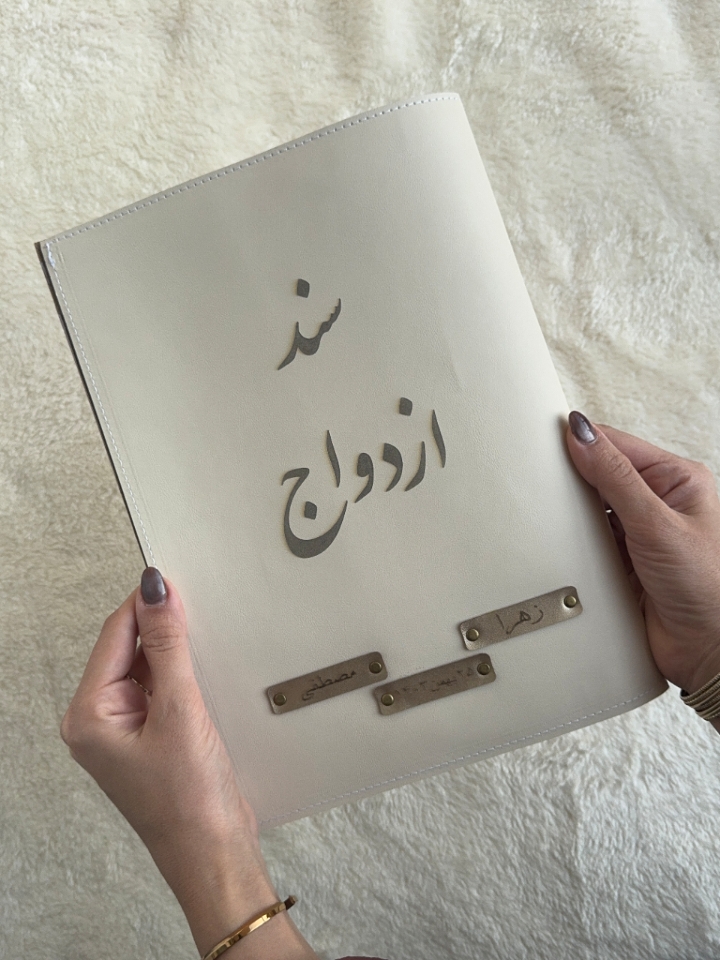 سند
ازدواج
زهرا
۲۵ بهمن ۴۰۳
مصطفی